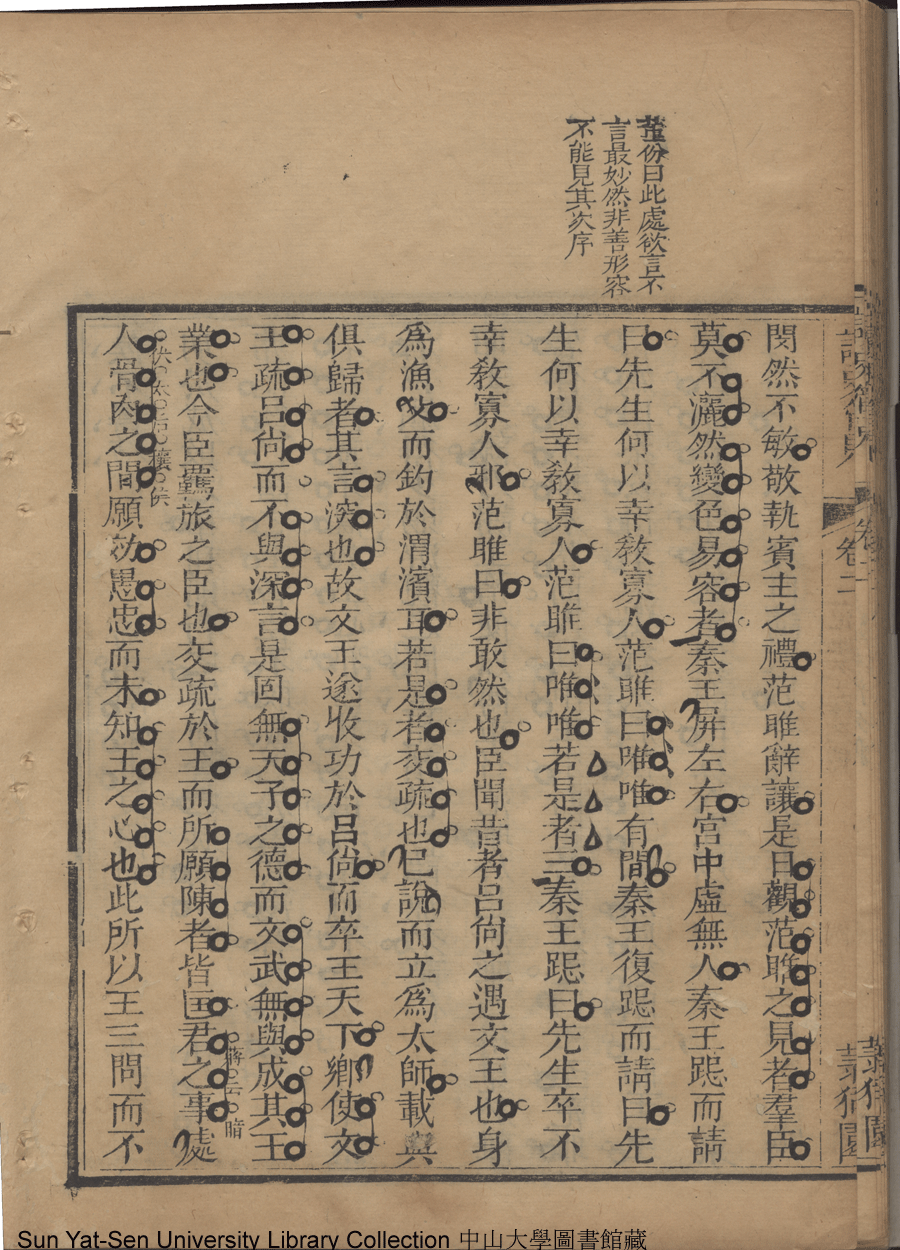 董份曰此處欲言不
言最妙然非善形容
不能見其次序
閔然不敏敬執賓主之禮范雎辭讓是日觀范雎之見者羣臣
莫不灑然變色易容者秦王屏左右宮中虛無人秦王跽而請
曰先生何以幸敎寡人范雎曰唯唯有間秦王復跽而請曰先
生何以幸敎寡人范雎曰唯唯若是者三秦王跽曰先生卒不
幸敎寡人邪范雎曰非敢然也臣聞昔者呂尙之遇文王也身
爲漁父而釣於渭濱耳若是者交疏也已說而立爲太師載與
俱歸者其言深也故文王遂收功於呂尙而卒王天下鄉使文
王疏呂尙而不與深言是固無天子之德而文武無與成其王
業也今臣羈旅之臣也交疏於王而所願陳者皆匡君之事處
蔣云暗
人骨肉之間願効愚忠而未知王之心也此所以王三問而不
太后穰侯
卷二
Sun Yat-Sen University Library Collection 中山大學圖書館藏